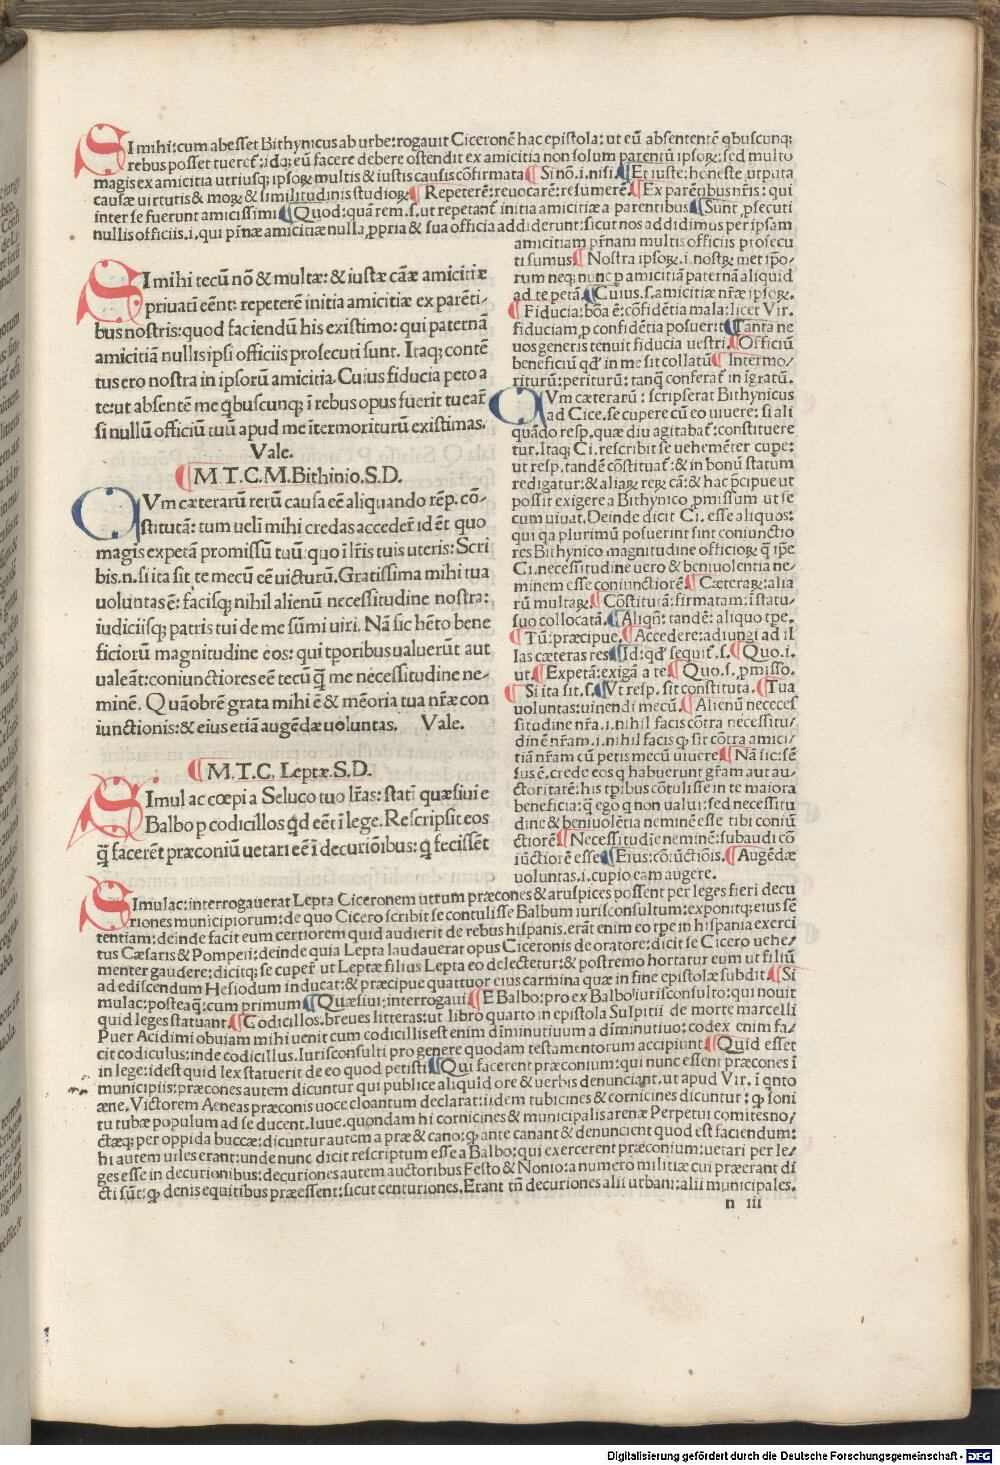 SI mihi: cum abesset Bithynicus ab urbe: rogauit Ciceronē hac epistola: ut eū absententē qbuscunq;
rebus posset tueret̄: idq; eū facere debere ostendit ex amicitia non solum parentū ipsoꝝ: sed multo
magis ex amicitia utriusq; ipsoꝝ multis & iustis causis cōfirmata ¶ Si nō .i. nisi. ¶ Et iuste: honeste utputa
causæ uirtutis & moꝝ & similitudinis studioꝝ ¶ Repeterē: reuocarē: resumerē. ¶ Ex parētibus nr̄is: qui
inter se fuerunt amicissimi ¶ Quod: quā rem .s. ut repetant̄ initia amicitiæ a parentibus ¶ Sunt ꝓsecuti
nullis officiis .i. qui pr̄næ amicitiæ nulla ꝓpria & sua officia addiderunt: sicut nos addidimus per ipsam
SI mihi tecū nō & multæ: & iustæ cāæ amicitiæ
priuati eēnt: repeterē initia amicitiæ ex parēti-
bus nostris: quod faciendū his existimo: qui paternā
amicitiā nullis ipsi officiis prosecuti sunt. Itaq; contē
tus ero nostra in ipsorū amicitia. Cuius fiducia peto a
te: ut absentē me qbuscunq; ī rebus opus fuerit tuearꝭ
si nullū officiū tuū apud me ītermoriturū existimas.
Vale.
¶ M.T.C.M. Bithinio.S.D.
QVm cæterarū rerū causa eē aliquando rēp. cō-
stitutā: tum uelī mihi credas accedere id eēt quo
magis expetā promissū tuū: quo ī lr̄is tuis uteris: Scri
bis .n. si ita sit te mecū eē uicturū. Gratissima mihi tua
uoluntas ē: facisq; nihil alienū necessitudine nostra:
iudiciisq; patris tui de me sūmi uiri. Nā sic hēto bene
ficiorū magnitudine eos: qui tporibus ualuerūt aut
ualeāt: coniunctiores eē tecū q̄ me necessitudine ne-
minē. Quāobrē grata mihi ē & mēoria tua nr̄æ con
iunctionis: & eius etiā augēdæ uoluntas. Vale.
¶ M.T.C. Leptæ.S.D.
SImul ac cœpi a Seluco tuo lr̄as: statī quæsiui e
Balbo p codicillos qd eēt ī lege. Rescripsit eos
q̄ facerēt præconiū uetari eē ī decuriōibus: q̄ fecissēt
amicitiam pr̄nam multis officiis prosecu
ti sumus ¶ Nostra ipsoꝝ .i. nostꝝ met ipso-
rum neq; nunc p amicitiā paternā aliquid
ad te petā. ¶ Cuius .s. amicitiæ nr̄æ ipsoꝝ.
¶ Fiducia: bōa ē: cōfidētia mala: licet Vir.
fiduciam ꝓ confidētia posuerit ¶ Tanta ne
uos generis tenuit fiducia uestri. ¶ Officiū
beneficiū qd̄ in me sit collatū ¶ Intermo/
riturū: periturū: tanq̄ conferat̄ in īgratū.
QVm cæterarū: scripserat Bithynicus
ad Cice. se cupere cū eo uiuere: si ali
quādo resp. quæ diu agitabat̄: constituere
tur. Itaq; Ci. rescribit se uehemēter cupe:
ut resp. tandē cōstituat̄: & in bonū statum
redigatur: & aliaꝝ reꝝ cā: & hac p̄cipue ut
possit exigere a Bithynico ꝓmissum ut se
cum uiuat. Deinde dicit Ci. esse aliquos:
qui qa plurimū posuerint sint coniunctio
res Bithynico magnitudine officioꝝ q̄ ipse
Ci. necessitudine uero & beniuolentia ne-
minem esse coniunctiorē ¶ Cæteraꝝ: alia
rū multaꝝ. ¶ Cōstitutā: firmatam: ī statu-
suo collocatā. ¶ Aliqn̄: tandē: aliquo tpe.
¶ Tū: præcipue. ¶ Accedere: adiungi ad il
las cæteras res ¶ Id: qd̄ sequit̄ .s. ¶ Quo .i.
ut. ¶ Expetā: exigā a te ¶ Quo .s. ꝓmisso.
¶ Si ita sit .s. ¶ Vt resp. sit constituta. ¶ Tua
uoluntas: uiuendi mecū. ¶ Alienū nececes
situdine nr̄a .i. nihil facis cōtra necessitu/
dinē nr̄am .i. nihil facis q̄ sit cōtra amici/
tiā nr̄am cū petis mecū uiuere ¶ Nā sic: sē
sus ē. crede eos q habuerunt gr̄am aut au/
ctoritatē: his tpibus cōtulisse in te maiora
beneficia: q̄ ego q non ualui: sed necessitu
dine & beniuolētia neminē esse tibi coniū
ctiorē ¶ Necessitudīe neminē: subaudi cō
iūctiorē esse ¶ Eius: cōiūctiōis. ¶ Augēdæ
uoluntas .i. cupio eam augere.
SImulac: interrogauerat Lepta Ciceronem utrum præcones & aruspices possent per leges fieri decu
riones municipiorum: de quo Cicero scribit se contulisse Balbum iurisconsultum: exponitq; eius sē
tentiam: deinde facit eum certiorem quid audierit de rebus hispanis. erāt enim eo tpe in hispania exerci
tus Cæsaris & Pompeii: deinde quia Lepta laudauerat opus Ciceronis de oratore: dicit se Cicero uehe/
menter gaudere: dicitq; se cuper̄ ut Leptæ filius Lepta eo delectetur: & postremo hortatur eum ut filiū
ad ediscendum Hesiodum inducat: & præcipue quattuor eius carmina quæ in fine epistolæ subdit. ¶ Si
mulac: posteaq̄: cum primum ¶ Quæsiui: interrogaui ¶ E Balbo: pro ex Balbo iurisconsulto: qui nouit
quid leges statuant. ¶ Codicillos. breues litteras: ut libro quarto in epistola Sulpitii de morte marcelli
Puer Acidimi obuiam mihi uenit cum codicillis est enim dīminutiuum a dīminutiuo: codex enim fa/
cit codiculus: inde codicillus. Iurisconsulti pro genere quodam testamentorum accipiunt ¶ Quid esset
in lege: idest quid lex statuerit de eo quod petisti ¶ Qui facerent præconium: qui nunc essent præcones ī
municipiis: præcones autem dicuntur qui publice aliquid ore & uerbis denunciant. ut apud Vir. ī qnto
æne. Victorem Aeneas præconis uoce cloantum declarat: iidem tubicines & cornicines dicuntur: q̄ soni
tu tubæ populum ad se ducent. Iuue. quondam hi cornicines & municipalis arenæ Perpetui comites no/
ctæq; per oppida buccæ: dicuntur autem a præ & cano: q̄ ante canant & denuncient quod est faciendum:
hi autem uiles erant: unde nunc dicit rescriptum esse a Balbo: qui exercerent præconium: uetari per le/
ges esse in decurionibus: decuriones autem auctoribus Festo & Nonio: a numero militiæ cui præerant di
cti sūt: q̄ denis equitibus præessent: sicut centuriones. Erant tn̄ decuriones alii urbani: alii municipales.
n iii
Digitalisierung gefördert durch die Deutsche Forschungsgemeinschaft - DFG